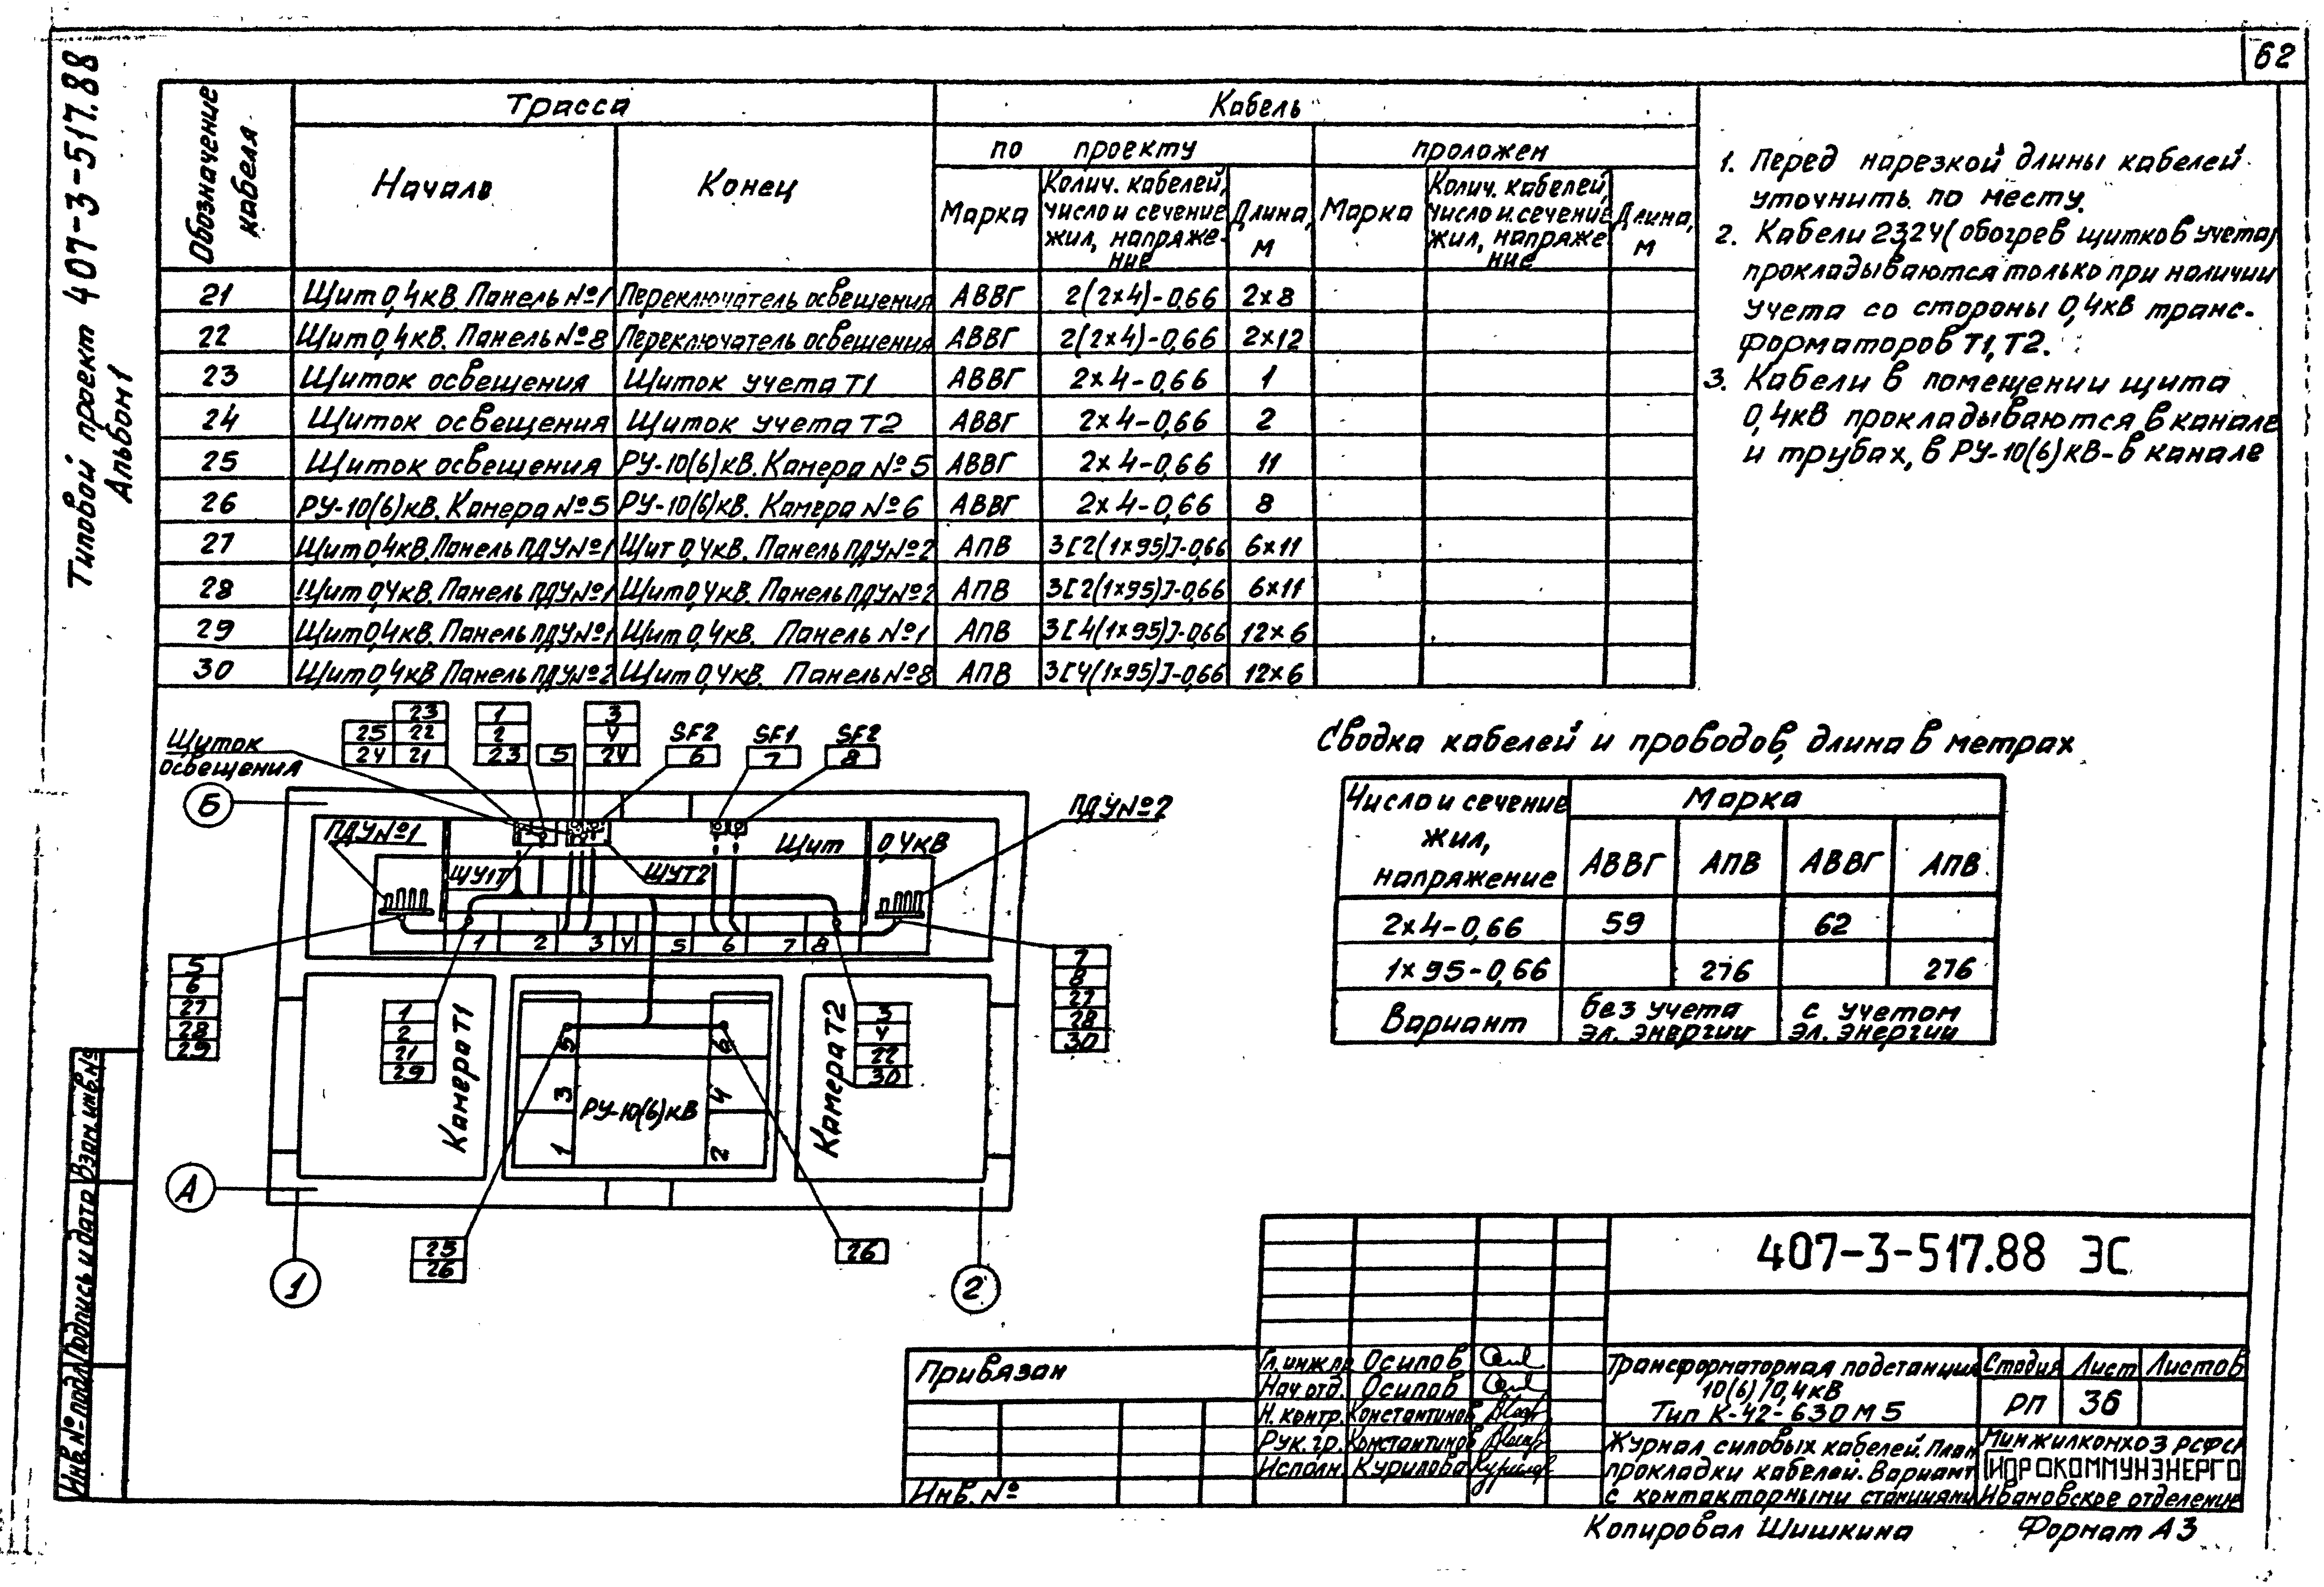 62
Типовой проект 407-3-517.88
Альбом 1
Обозначение кабеля
Трасса
Кабель
Начало
Конец
по проекту
проложен
Марка
Колич. кабелей, число и сечение жил, напряжение
Длина, м
Марка
Колич. кабелей, число и сечение жил, напряжение
Длина, м
21 Щит 0,4кВ. Панель №1 Переключатель освещения АВВГ 2(2×4)-0,66 2×8
22 Щит 0,4кВ. Панель №8 Переключатель освещения АВВГ 2(2×4)-0,66 2×12
23 Щиток освещения Щиток учета Т1 АВВГ 2×4-0,66 1
24 Щиток освещения Щиток учета Т2 АВВГ 2×4-0,66 2
25 Щиток освещения РУ-10(6)кВ. Камера №5 АВВГ 2×4-0,66 11
26 РУ-10(6)кВ. Камера №5 РУ-10(6)кВ. Камера №6 АВВГ 2×4-0,66 8
27 Щит 0,4кВ. Панель ПДУ №1 Щит 0,4кВ. Панель ПДУ №2 АПВ 3[2(1×95)]-0,66 6×11
28 Щит 0,4кВ. Панель ПДУ №1 Щит 0,4кВ. Панель ПДУ №2 АПВ 3[2(1×95)]-0,66 6×11
29 Щит 0,4кВ. Панель ПДУ №1 Щит 0,4кВ. Панель №1 АПВ 3[4(1×95)]-0,66 12×6
30 Щит 0,4кВ Панель ПДУ №2 Щит 0,4кВ. Панель №8 АПВ 3[4(1×95)]-0,66 12×6
1. Перед нарезкой длины кабелей
уточнить по месту.
2. Кабели 23,24 (обогрев щитков учета)
прокладываются только при наличии
учета со стороны 0,4кВ транс-
форматоров Т1, Т2.
3. Кабели в помещении щита
0,4кВ прокладываются в канале
и трубах, в РУ-10(6)кВ-в канале
23
25 22
24 21
1
2
23
5
3
4
24
SF2
6
SF1
7
SF2
8
Щиток
освещения
Б
ПДУ №1
ПДУ №2
Щит 0,4кВ
ЩУ1Т
ЩУТ2
1 2 3 4 5 6 7 8
5
6
27
28
29
7
8
27
28
30
1
2
21
29
3
4
22
30
Камера Т1
Камера Т2
5 6
3 4
РУ-10(6)кВ
1 2
А
25
26
26
1
2
Сводка кабелей и проводов, длина в метрах
Число и сечение жил, напряжение
Марка
АВВГ АПВ АВВГ АПВ
2×4-0,66 59 62
1×95-0,66 276 276
Вариант
без учета эл. энергии
с учетом эл. энергии
Взам. инв. №
Подпись и дата
Инв. № подл.
Привязан
Инв. №
Гл. инж. пр Осипов
Нач. отд. Осипов
Н. контр. Константинов
Рук. гр. Константинов
Исполн. Курилова
407-3-517.88 ЭС
Трансформаторная подстанция
10(6)/0,4кВ
Тип К-42-630 М5
Стадия Лист Листов
РП 36
Журнал силовых кабелей. План
прокладки кабелей. Вариант
с контакторными станциями
Минжилкомхоз РСФСР
ГИПРОКОММУНЭНЕРГО
Ивановское отделение
Копировал Шишкина
Формат А3